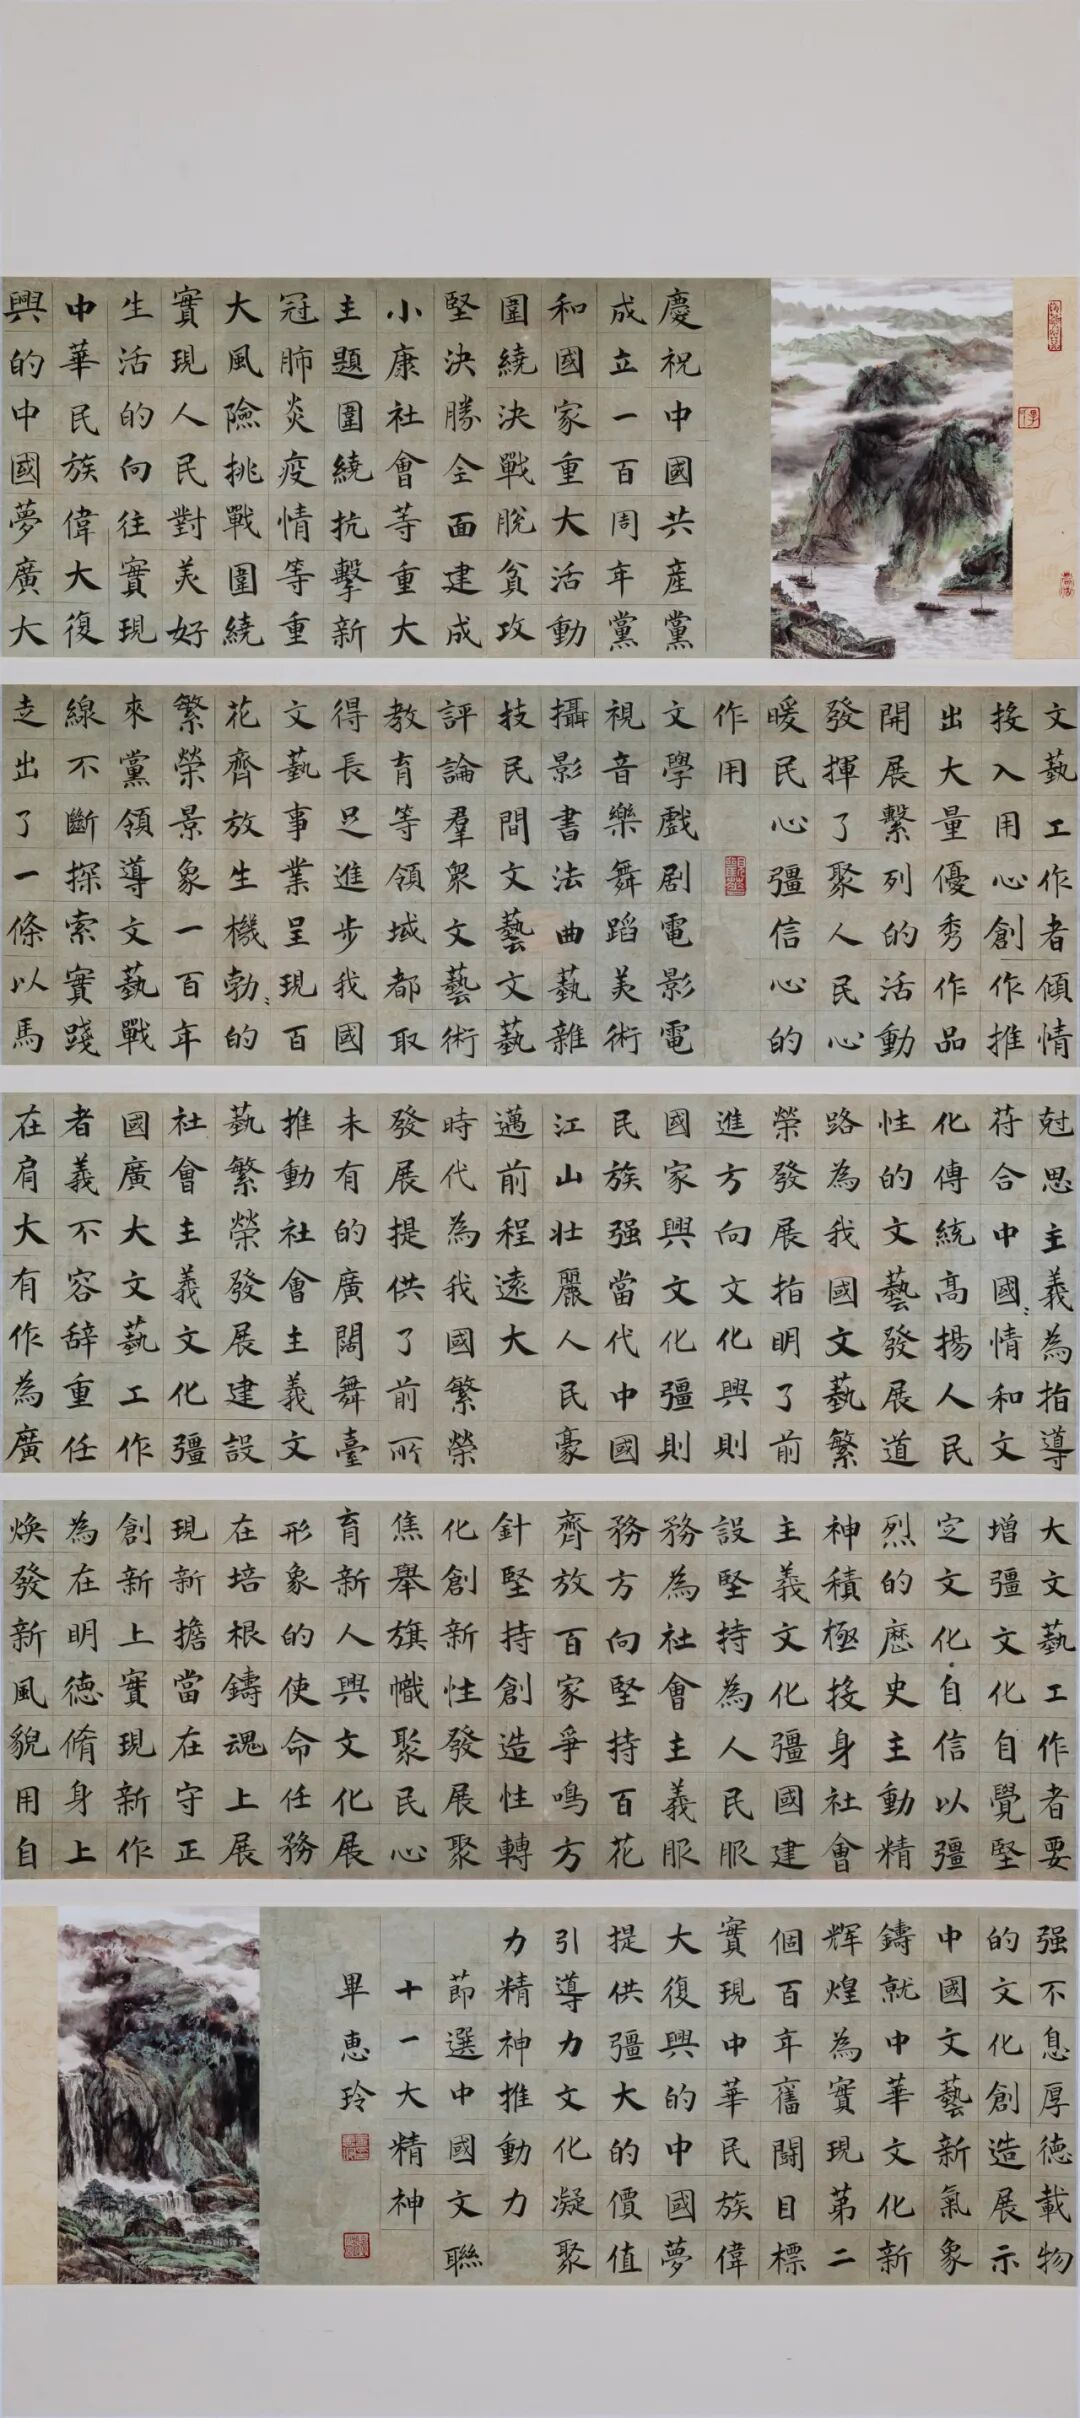 慶祝中國共產黨
成立一百周年黨
和國家重大活動
圍繞決戰脫貧攻
堅決勝全面建成
小康社會等重大
主題圍繞抗擊新
冠肺炎疫情等重
大風險挑戰圍繞
實現人民對美好
生活的向往實現
中華民族偉大復
興的中國夢廣大
文藝工作者傾情
投入用心創作推
出大量優秀作品
開展繫列的活動
發揮了聚人民心
暖民心彊信心的
作用
文學戲剧電影電
視音樂舞蹈美術
攝影書法曲藝雜
技民間文藝文藝
評論羣眾文藝術
教育等領域都取
得長足進步我國
文藝事業呈現百
花齊放生機勃勃的
繁榮景象一百年
來黨領導文藝戰
線不斷探索實踐
走出了一條以馬
尅思主義為指導
苻合中國情和文
化傳統高揚人民
性的文藝發展道
路為我國文藝繁
榮發展指明了前
進方向文化興則
國家興文化彊則
民族强當代中國
江山壮麗人民豪
邁前程遠大
時代為我國繁榮
發展提供了前所
未有的廣闊舞臺
推動社會主義文
藝繁榮發展建設
社會主義文化彊
國廣大文藝工作
者義不容辞重任
在肩大有作為廣
大文藝工作者要
增彊文化自覺堅
定文化自信以彊
烈的歷史主動精
神積極投身社會
主義文化彊國建
設堅持為人民服
務為社會主義服
務方向堅持百花
齊放百家爭鳴方
針堅持創造性轉
化創新性發展聚
焦舉旗幟聚民心
育新人興文化展
形象的使命任務
在培根鑄魂上展
現新擔當在守正
創新上實現新作
為在明德脩身上
煥發新風貌用自
强不息厚德載物
的文化創造展示
中國文藝新氣象
鑄就中華文化新
辉煌為實現第二
個百年奮鬪目標
實現中華民族偉
大復興的中國夢
提供彊大的價值
引導力文化凝聚
力精神推動力
節選中國文聯
十一大精神
畢惠玲